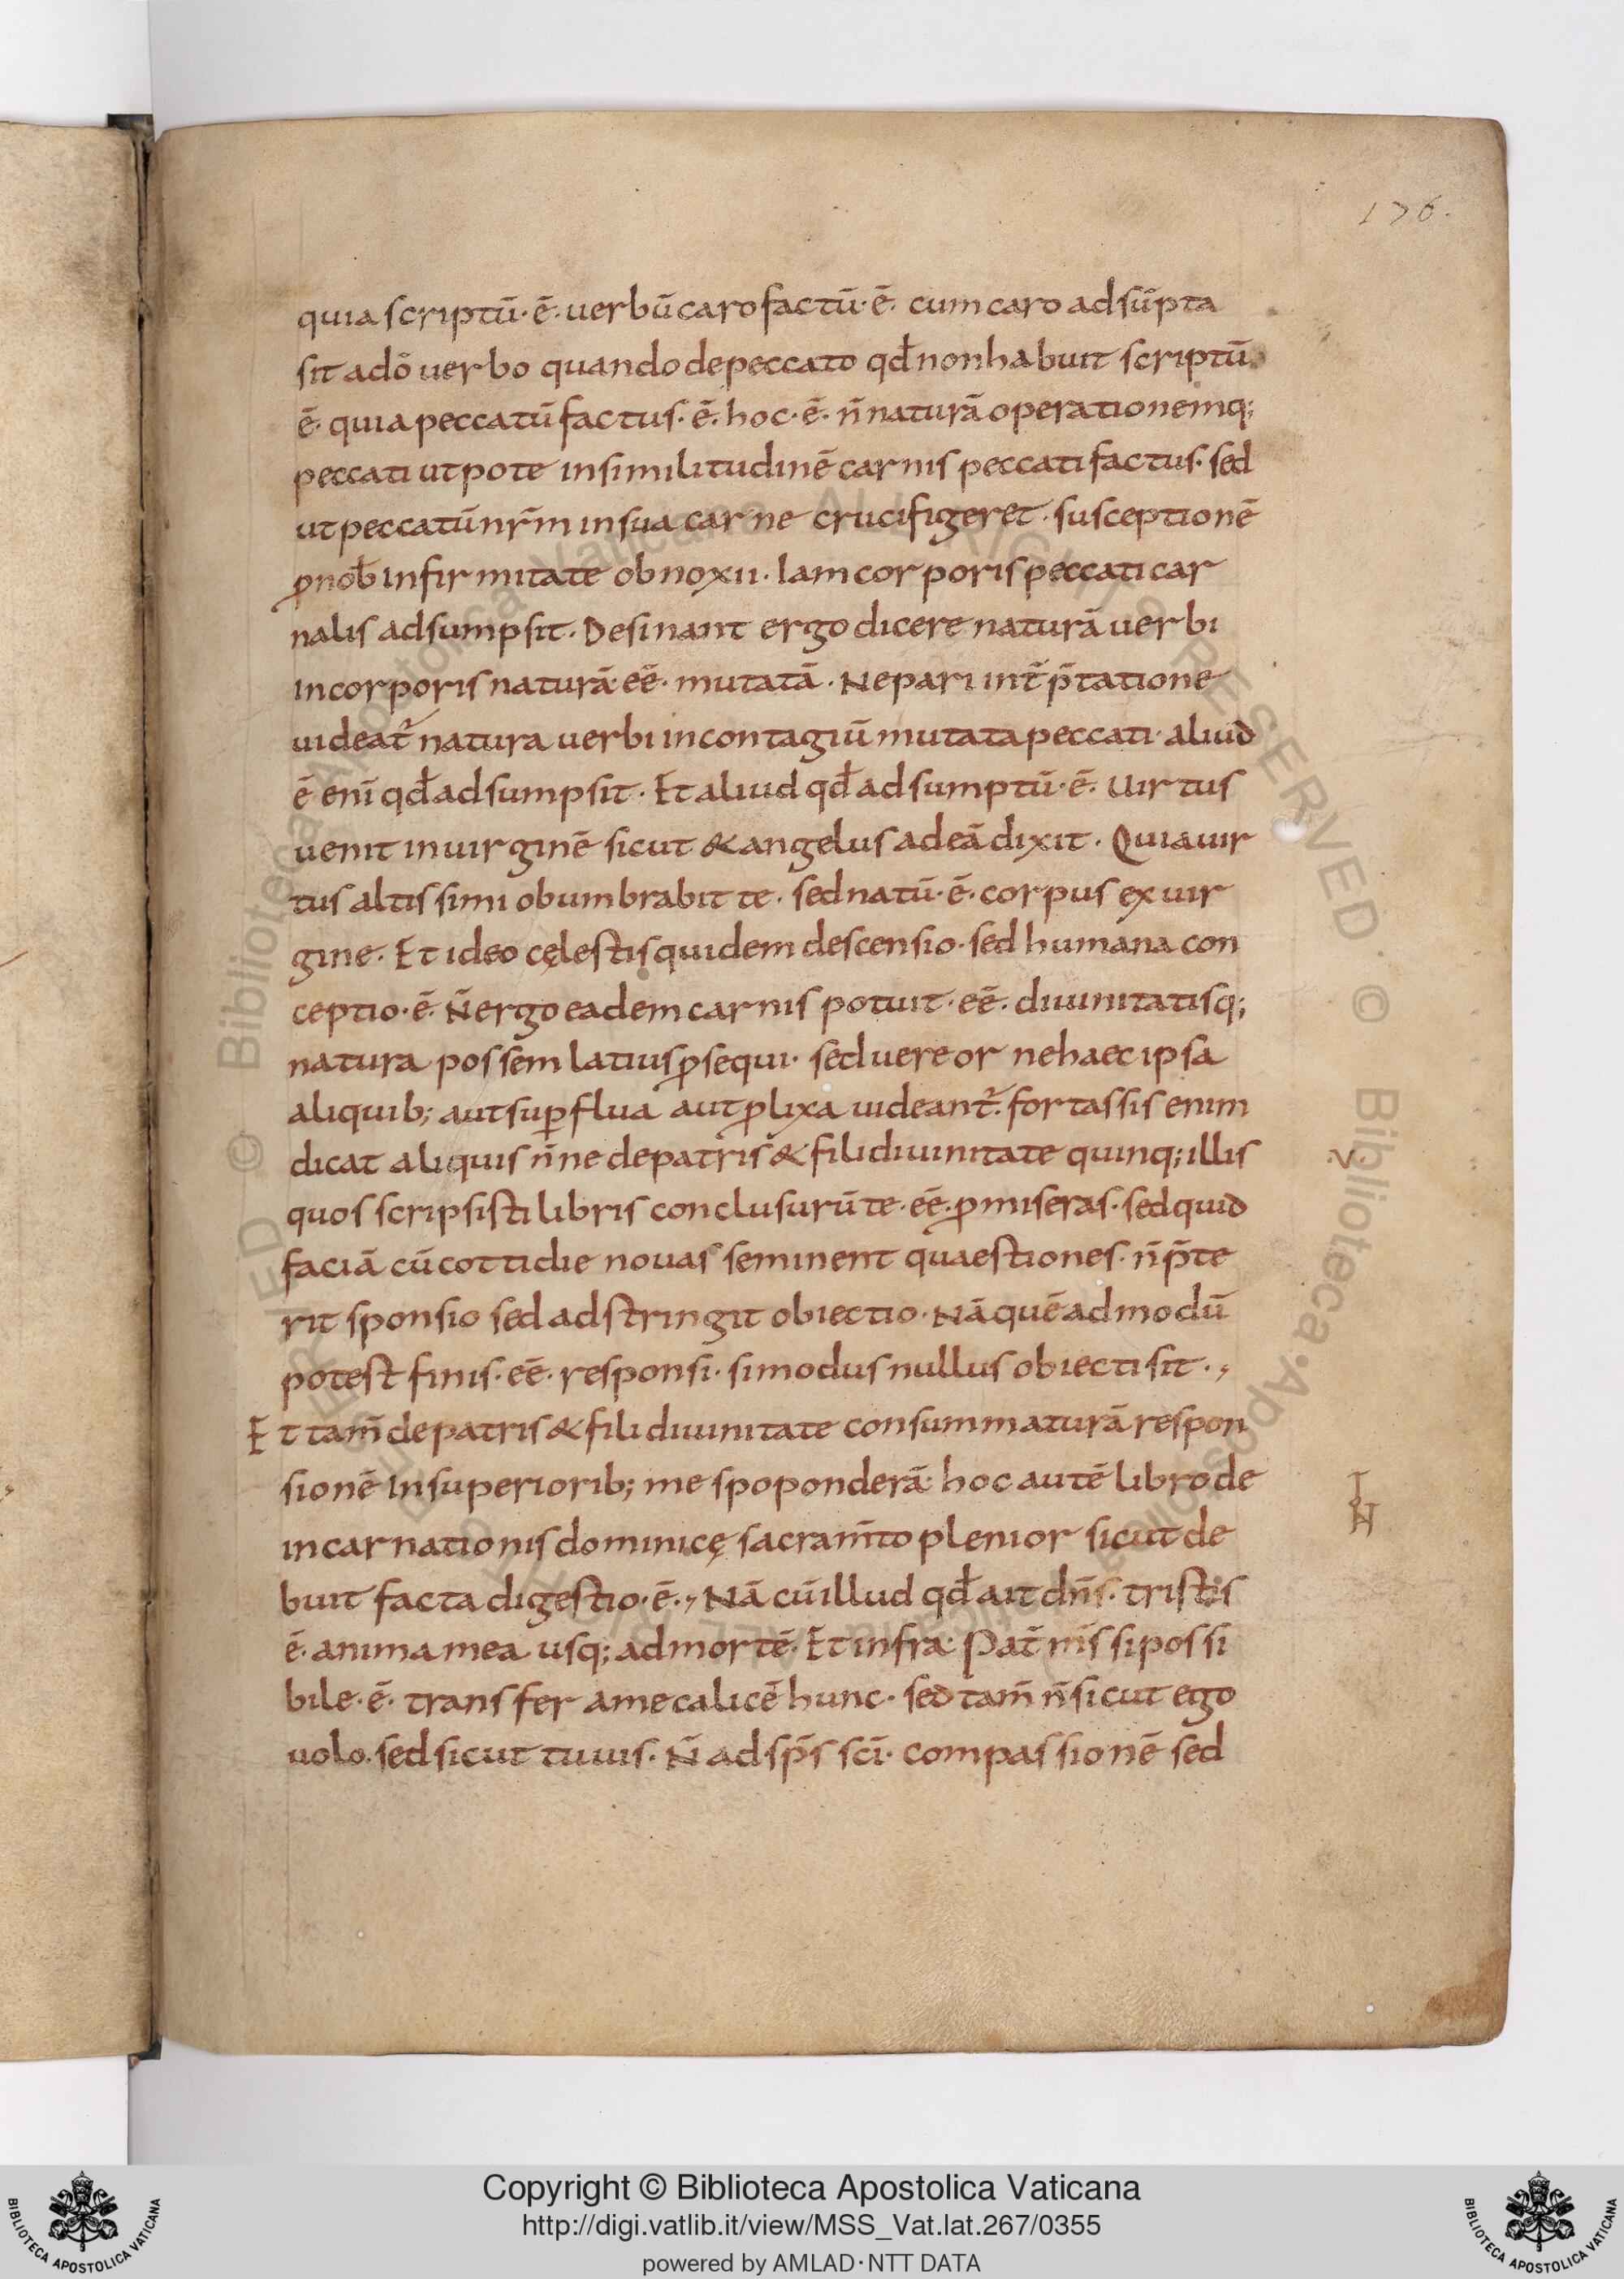 176.
quia scriptū· ē· uerbū caro factū· ē· cum caro adsūpta
sit a dō uerbo quando de peccato qđ non habuit scriptū
ē· quia peccatū factus· ē· hoc· ē· n̄ naturā operationemq;
peccati utpote in similitudinē carnis peccati factus· sed
ut peccatū nr̄m in sua carne crucifigeret· susceptionē
ꝓ nob̄ infirmitate obnoxii· Iam corporis peccati car
nalis adsumpsit· Desinant ergo dicere naturā uerbi
in corporis naturā· eē· mutatā· Ne pari int̄p̄tatione
uideat̄ natura uerbi in contagiū mutata peccati· aliud
ē enī qđ adsumpsit· Et aliud qđ adsumptū· ē· Uirtus
uenit in uirginē sicut & angelus ad eā dixit· Quia uir
tus altissimi obumbrabit te· sed natū· ē· corpus ex uir
gine· Et ideo cęlestis quidem descensio· sed humana con
ceptio· ē· N̄ ergo eadem carnis potuit· eē· diuinitatisq;
natura possem latius ꝓsequi· sed uereor ne haec ipsa
aliquib; aut suꝑflua aut ꝓlixa uideant̄· fortassis enim
dicat aliquis n̄ne de patris & fili diuinitate quinq; illis
·V·
quos scripsisti libris conclusurū te· eē· ꝓmiseras· sed quid
faciā cū cottidie nouas seminent quaestiones· n̄ p̄te
rit sponsio sed adstringit obiectio· Nā quēadmodū
potest finis· eē· responsi· si modus nullus obiecti sit·,
Et tam̄ de patris & fili diuinitate consummaturā respon
sionē In superiorib; me spoponderā· hoc autē libro de
incarnationis dominicę sacram̄to plenior sicut de
buit facta digestio· ē·, Nā cū illud qđ ait dn̄s· tristis
ē· anima mea usq; ad mortē· Et infra· Pat̄ mī si possi
bile· ē· transfer a me calicē hunc· sed tam̄ n̄ sicut ego
uolo· sed sicut tu uis· N̄ ad sp̄s scī· compassionē sed
Copyright © Biblioteca Apostolica Vaticana
http://digi.vatlib.it/view/MSS_Vat.lat.267/0355
powered by AMLAD · NTT DATA
BIBLIOTECA APOSTOLICA VATICANA
BIBLIOTECA APOSTOLICA VATICANA